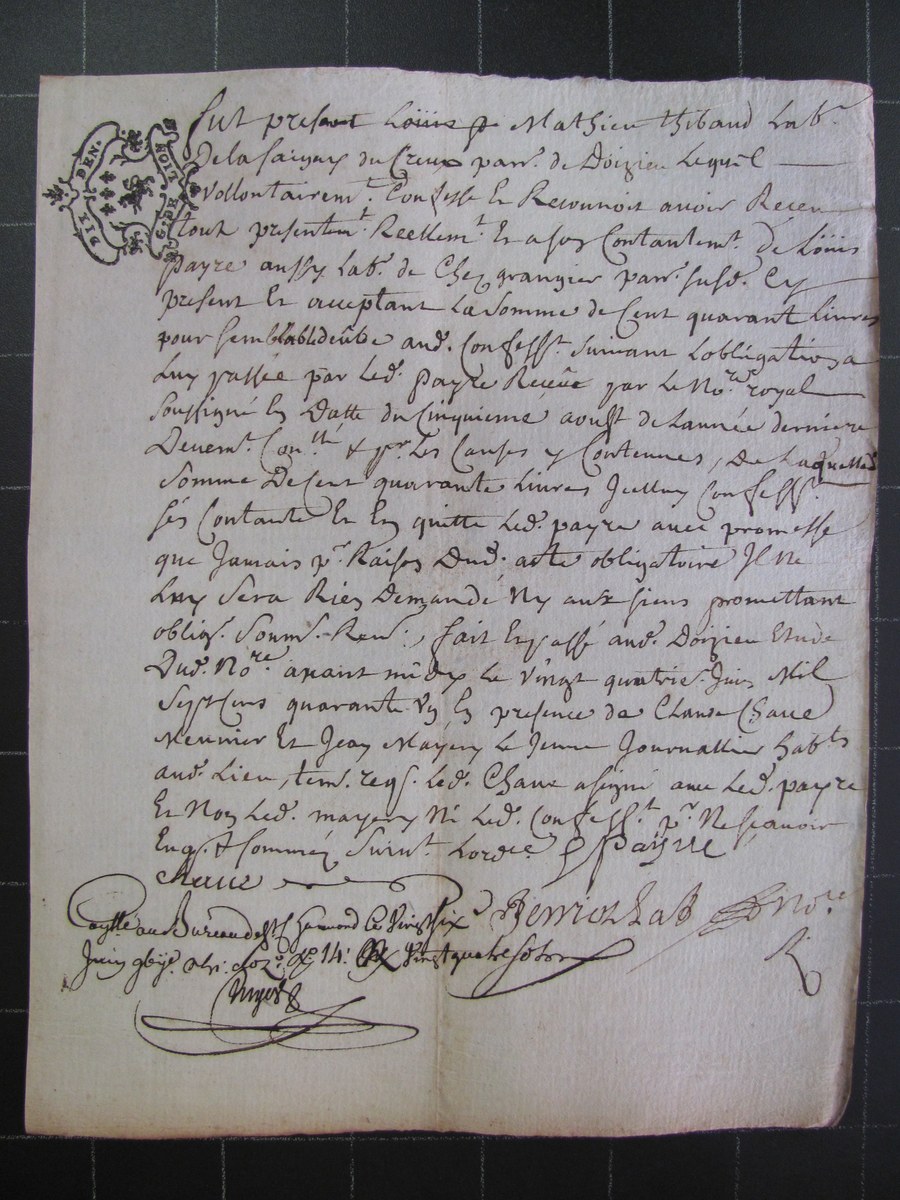 SIX DEN.
G. DE LYON DROIT
fut present Louis p Mathieu thibaud Lab.r
De la faigny du Creux parr. de Doizieu Lequel
vollontairem.t Confesse Et Reconnoit avoir Receu
tout presentem.t Reellem.t Et a son Contantem.t De Loüis
payre aussy Lab.r de Chez grangier parr. susd. Cy
present Et acceptant La somme de Cent quarant Livres
pour semblable deüe aud. Confess.t suivant Lobligation a
Luy passée par Led. payre Receüe par Le No.re royal
soussigné En Datte du Cinquieme aoust de Lannée derniere
Devem.t Con.llé & p.r Les Causes y Contenues, De Laquelle
somme De Cent quarante Livres Jcelluy Confess.t
ses Contante Et En quitte Led. payre avec promesse
que Jamais p.r Raison Dud. acte obligatoire Jl ne
Luy sera Rien Demandé Ny aux siens promettant
oblig. soum. Ren. , fait Et passé aud. Doizieu Etude
Dud. No.re avant midy Le vingt quatrie. Juin Mil
sept Cens quarante En presence de Claude Chave
Meunier Et Jean Mayery Le Jeune Journallier hab.ts
aud. Lieu, tem. req. Led. Chave a signé avec Led. payre
Et Non Led. mayery Ni Led. Confess.t p.r Ne sçavoir
Enq. & sommés suiv.t Lord.ce payre
chave
Perriol Lab No.re
au Bureau de St Chamond Le vingt six
Juin 14: vingt quatre sols
R